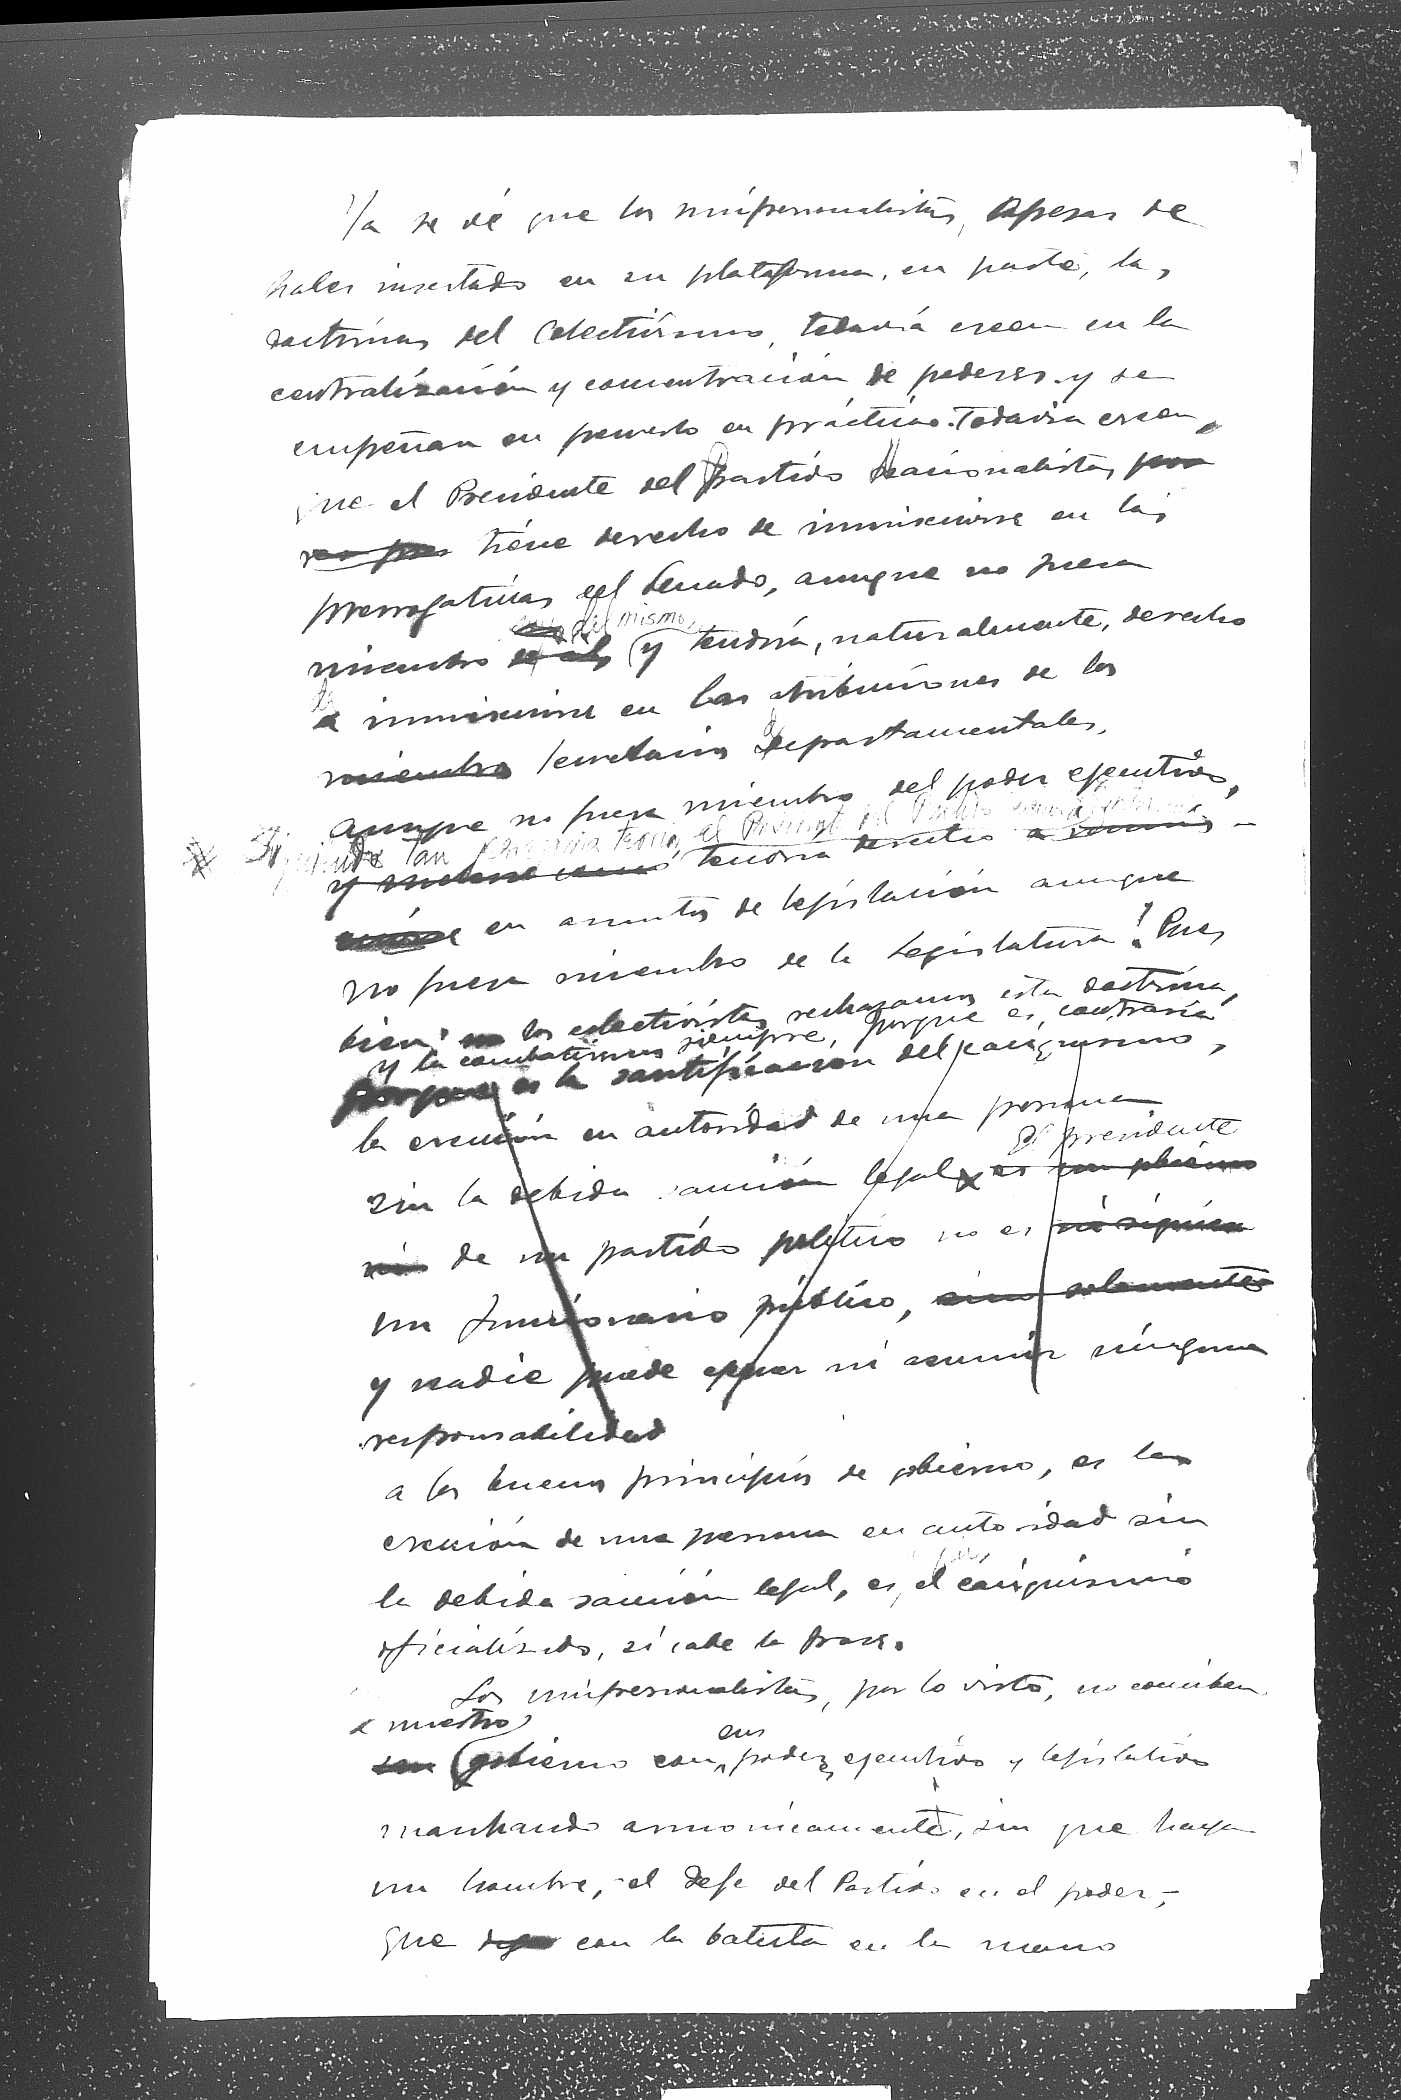 Ya se vé que los unipersonalistas, apesar de
haber insertado en su plataforma, en parte, las
doctrinas del Colectivismo, todavia creen en la
centralización y concentración de poderes y se
empeñan en ponerlo en práctica. Todavia creen,
que el Presidente del Partido Nacionalista, por
tiene derecho de inmiscuirse en las
prerrogativas del Senado, aunque no fuera
del mismo
miembro de al y tendria, naturalmente, derecho
a inmiscuirse en las atribuciones de los
miembros Secretarios Departamentales,
aunque no fuera miembro del poder ejecutivo,
Siguiendo tan peregrina teoria, el Presidente del Partido
y tendria derecho a
en asuntos de legislación aunque
no fuera miembro de la Legislatura! Pues
bien: no los colectivistas rechazamos esta doctrina,
y la combatiremos siempre, porque es, contraria
porque es la santificación del caciquismo,
la erección en autoridad de una persona
El presidente
sin la debida sanción legal, es un gobierno
ni de un partido politico no es ni siquiera
un funcionario público, sino solamente
y nadie puede ni asumir ninguna
responsabilidad
a los buenos principios de gobierno, es la
erección de una persona en autoridad sin
la debida sanción legal, es, el caciquismo
oficializado, si cabe la frase.
Los unipersonalistas, por lo visto, no conciben
a nuestro
sus
un gobierno con poderes ejecutivo y legislativo
marchando armonicamente, sin que haya
un hombre, - el Jefe del Partido en el poder, -
que con la batuta en la mano